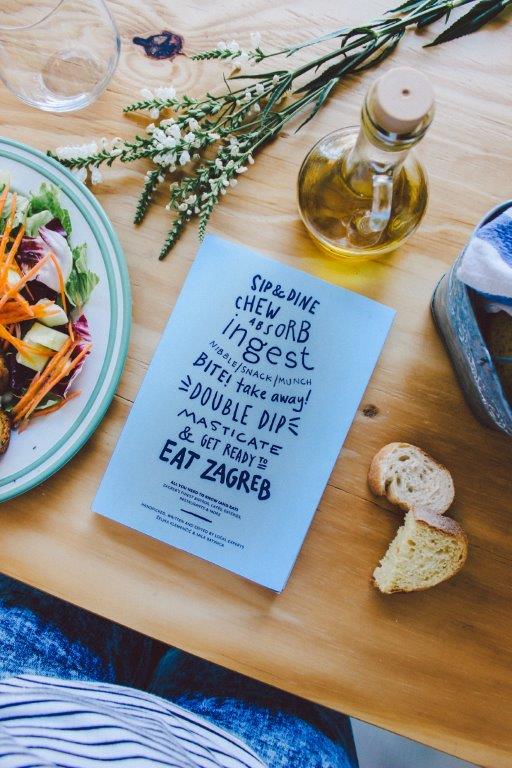 SIP & DINE
CHEW
ABSORB
ingest
NIBBLE/SNACK/MUNCH
BITE! take away!
DOUBLE DIP
MASTICATE
& GET READY TO
EAT ZAGREB
ALL YOU NEED TO KNOW (AND EAT)
ZAGREB'S FINEST BISTROS, CAFÉS, EATERIES,
RESTAURANTS & MORE
HANDPICKED, WRITTEN AND EDITED BY LOCAL EXPERTS